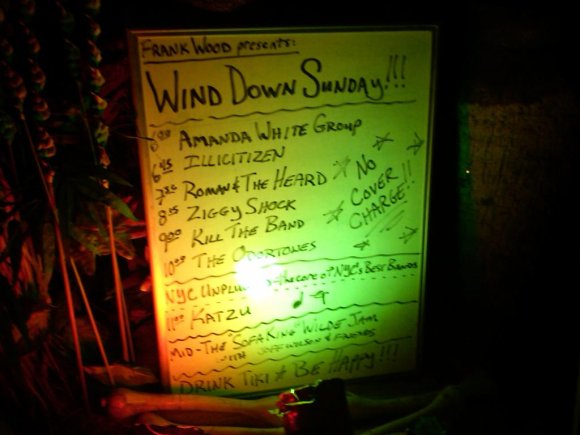 FRANK WOOD presents:
WIND DOWN SUNDAY!!!
AMANDA WHITE GROUP
6:45 ILLICITIZEN
7:30 ROMAN & THE HEARD
8:15 ZIGGY SHOCK
9:00 KILL THE BAND
10:00 THE ODORTONES
NO COVER CHARGE!!
NYC
NYC'S BEST BANDS
11:00 KATZU
MID-THE "SOFA KING" WILDE JAM
WITH & FRIENDS
DRINK TIKI & BE HAPPY!!!